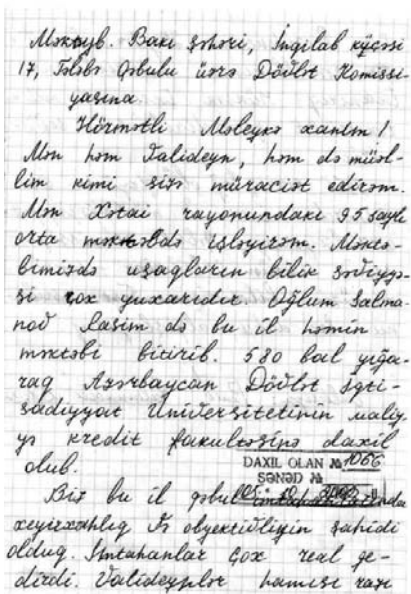 Məktyb. Bakı şəhəri, İngilab küçəsi
17, Tələbə Qəbulu üzrə Dövlət Komissi-
yasına
Hörmətli Məleykə xanım!
Mən həm Valideyn, həm də müəl-
lim kimi sizə müraciət edirəm.
Mən Xətai rayonundakı 95 saylı
orta məktəbdə işləyirəm. Məktə-
bimizdə uşaqların bilik səviyyə-
si çox yuxarıdır. Oğlum Salma-
nov Rasim də bu il həmin
məktəbi bitirib. 580 bal yığa-
raq Azərbaycan Dövlət İqti-
sadiyyat Universitetinin maliy-
yə kredit fakultəsinə daxil
olub.
DAXİL OLAN № 1066
SƏNƏD №
Biz bu il qəbul
xeyirxahlıq və obyektivliyin şahidi
olduq. İmtahanlar çox real ge-
dirdi. Valideynlər hamısı razı